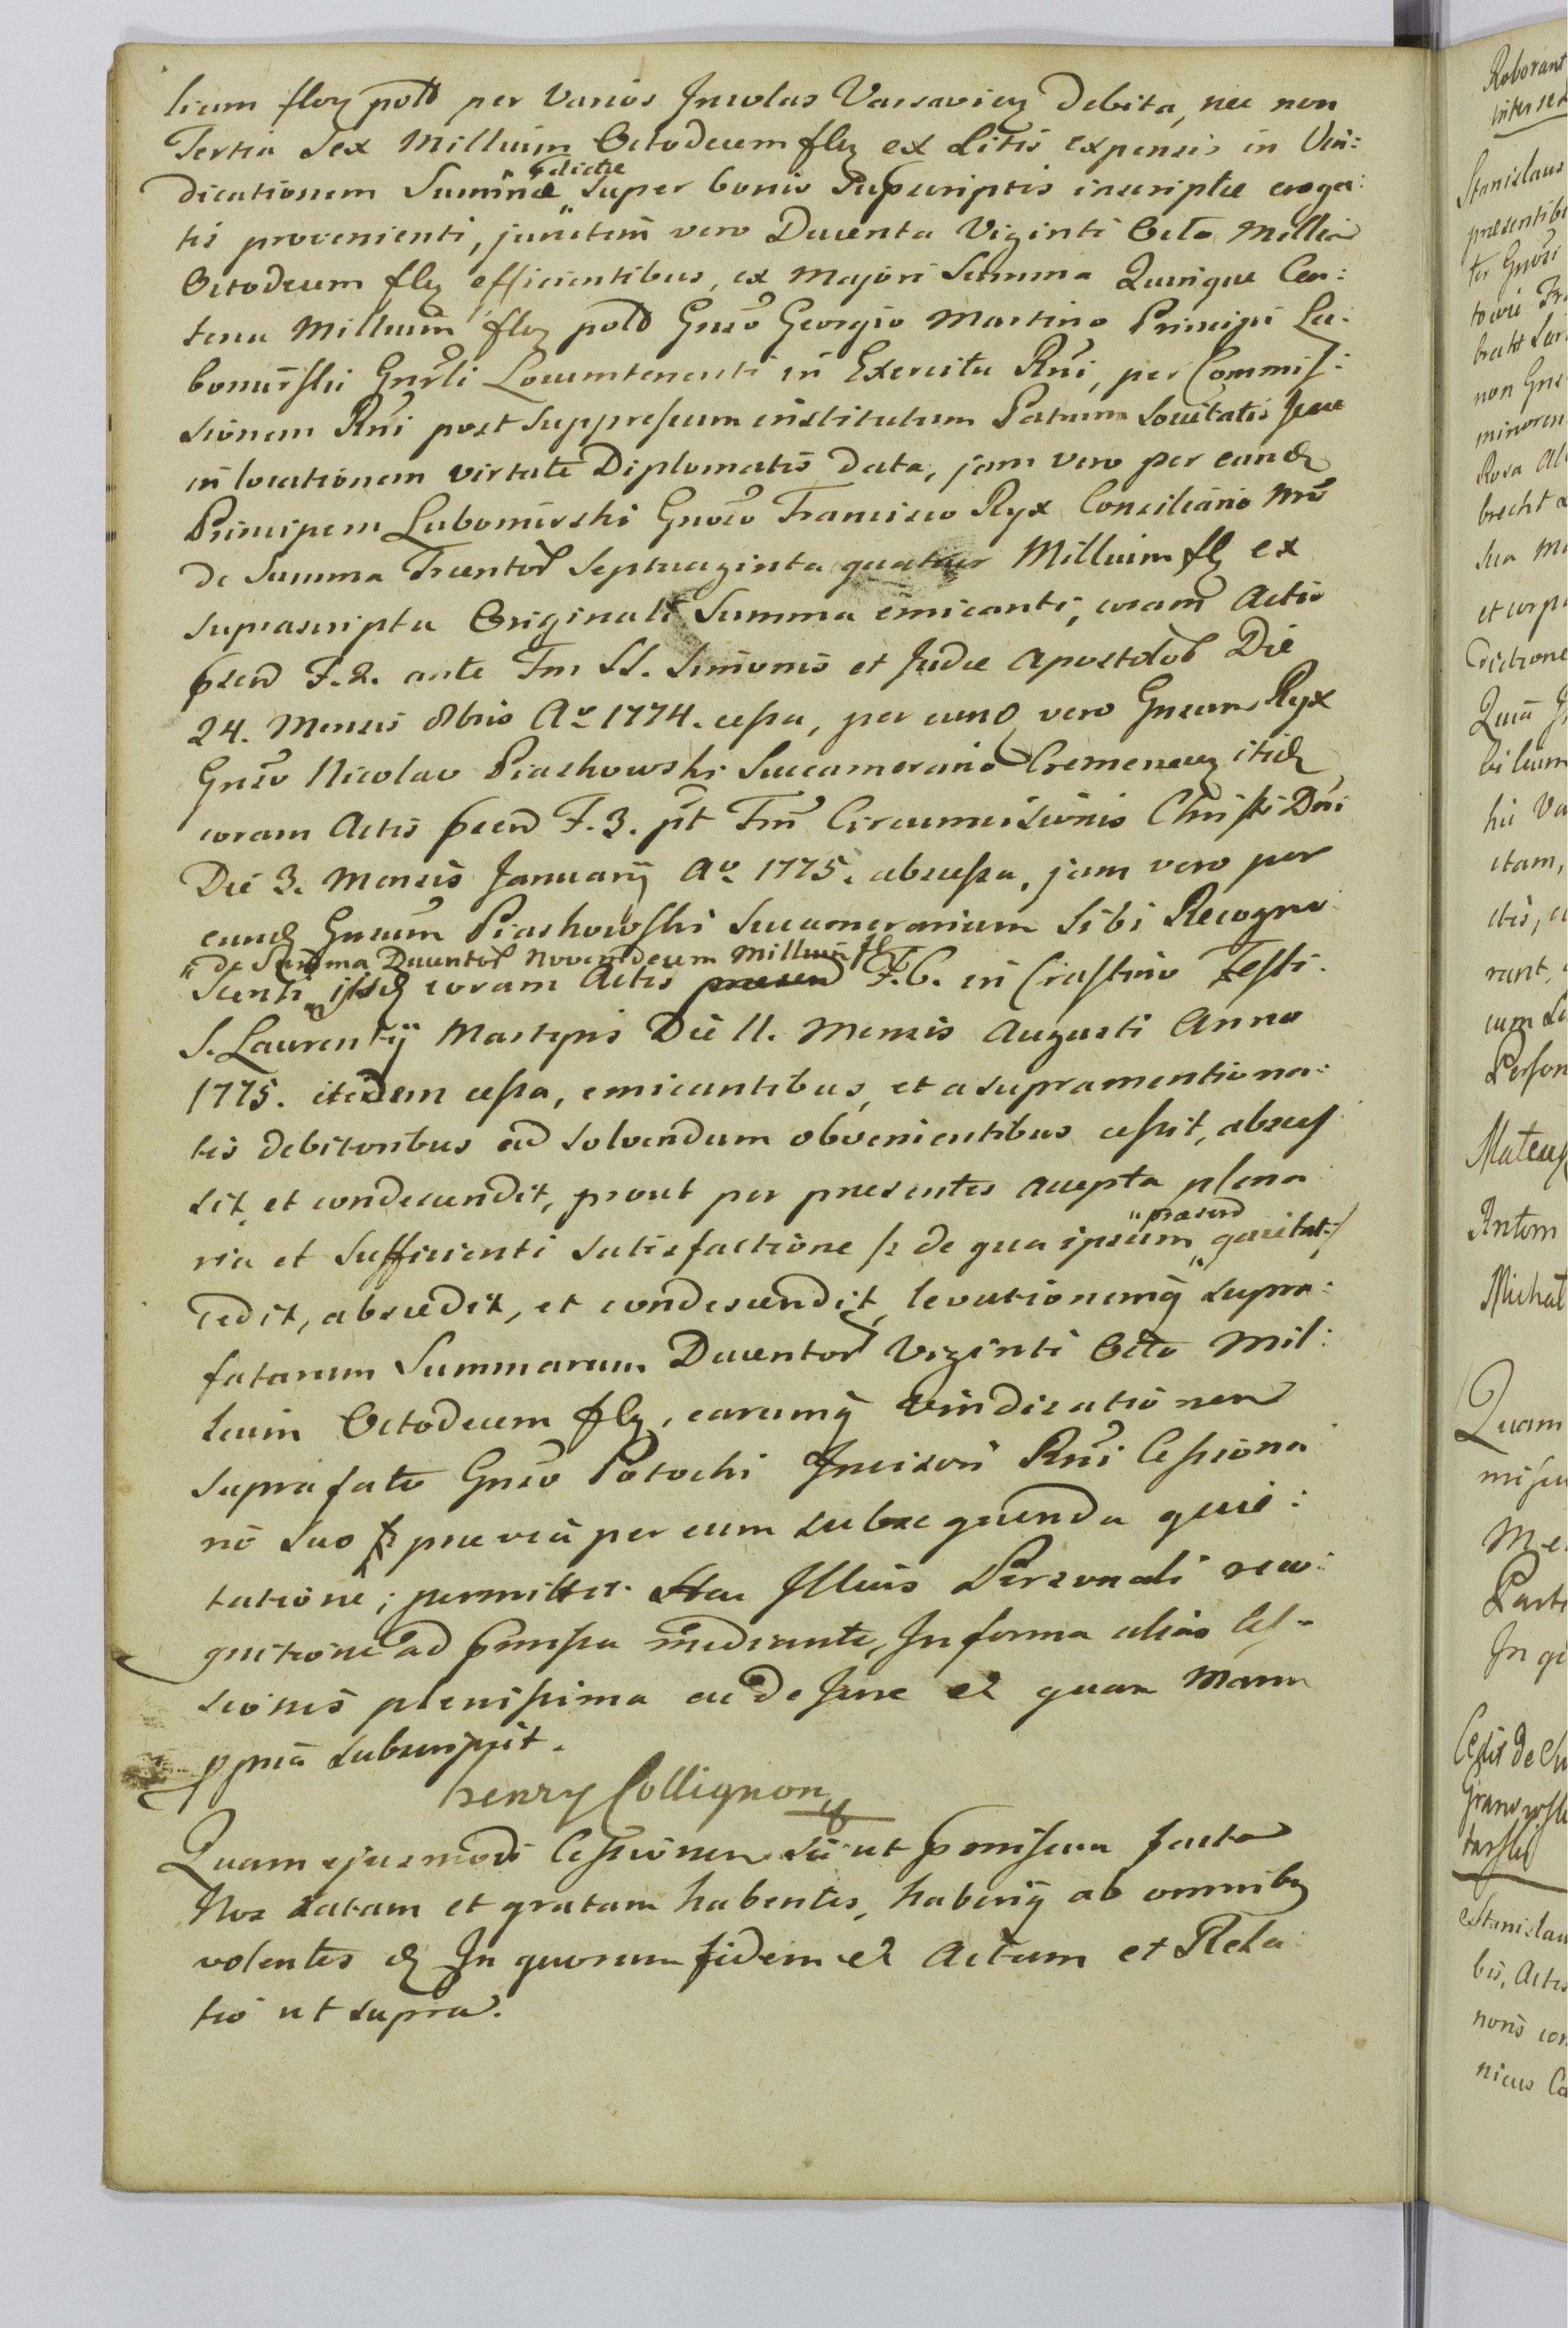 lium floz pold per Varios Incolas Varsavien debita, nec non
Tertia Sex Millium Octodecem flz ex Litis expensis in Vin:
dicationem Summae "dictae super bonis supscriptis inscriptae eroga:
tis provenienti, junctim vero Ducenta Viginti Octo Millia
Octodecem flz efficientibus, ex Majori Summa Quinque Cen:
tena Millium floz pold Gnso Georgio Martino Principi Lu:
bomirskii Gnrli Locumtenenti in Exercitu Rni, per Commis:
sionem Rni post suppressum institutum Patrum Societatis Jesu
in locationem virtute Diplomatis data, jam vero per eund
Principem Lubomirski Gnoso Francisco Ryx Consiliario Nro
de Summa Trecentor Septuaginta quatuor Millium flz ex
suprascripta Originali Summa emicanti, coram Actis
psen F. 2. ante Fm SS. Simonis et Judae Apostolor Die
24. Mensis 8bris Ao 1774. cessa, per eund vero Gnsum Ryx
Gnso Nicolao Piaskowski Succamerario Cremenec itid
coram Actis psen F. 3. pt Fm Circumcisionis Christi Dni
Die 3. Mensis Januarij Ao 1775. abscessa, jam vero per
eund Gnsum Piaskowski Succamerarium Sibi Recogno
"de Summa Ducentor Novendecem Millium fl
scenti "itid coram Actis praesen F. 6. in Crastino Festi
S. Laurentij Martyris Die 11. Mensis Augusti Anno
1775. itidem cessa, emicantibus, et a supramentiona:
tis debitoribus ad solvendum obvenientibus cessit, absces
sit, et condescendit, prout per praesentes accepta plena
ria et sufficienti satisfactione /: de qua ipsum "praesen quietat :/
cedit, abscedit, et condescendit, levationemq supra:
fatarum Summarum Ducentor Viginti Octo Mil:
lium Octodecem flz, earumq vindicationem
suprafato Gnso Potocki Incisori Rni Cessiona
rio suo praevia per eum subsequenda quie:
tatione; permittit. Hac Illius Personali reco:
gnitione ad pmissa mediante, In forma alias Ces-
sionis plenissima ac de Jure et quam Manu
ppria subscripsit.
henry Collignon
Quam ejusmodi Cessionem sic ut pmissum facta
Nos ratam et gratam habentes, haberiq ab omnibq
volentes & In quorum fidem et Actum et Rela
tio ut supra.
Stanislaus
Quam
Perso
Mateus
Antoni
Michał
Quam
In qu
Stanislau